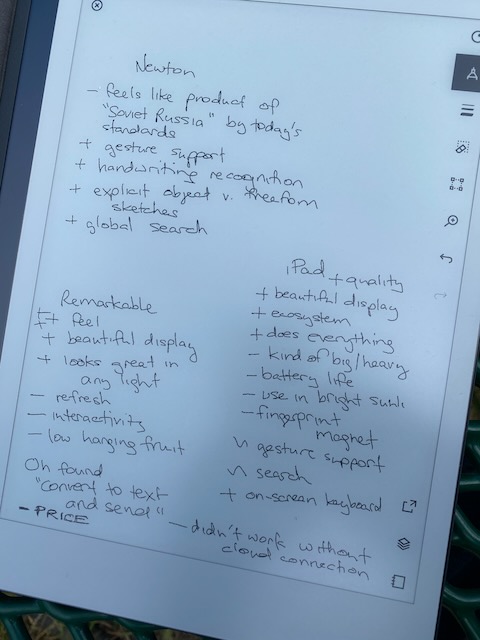 Newton
- feels like product of
"Soviet Russia" by today's
standards
+ gesture support
+ handwriting recognition
+ explicit object v. freeform
sketches
+ global search
Remarkable
++ feel
+ beautiful display
+ looks great in
any light
- refresh
- interactivity
- low hanging fruit
Oh found
"Convert to text
and send"
- didn't work without
cloud connection
- PRICE
iPad + quality
+ beautiful display
+ ecosystem
+ does everything
- kind of big/heavy
- battery life
- use in bright sunli
- fingerprint
magnet
~ gesture support
~ search
+ on-screen keyboard